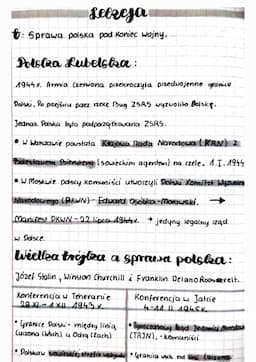 Lekcja
t: Sprawa polska pod koniec wojny.
Polska Lubelska:
1944r. Armia Czerwona przekroczyła przedwojenne granice
Polski. Po przejściu przez rzekę Bug ZSRS wyzwoliło Polskę.
Jednak Polska była podporządkowana ZSRS.
• W Warszawie powstała Krajowa Rada Narodowa (KRN) z
Bolesławem Bierutem (sowieckim agentem) na czele. 1.I.1944
• W Moskwie polscy komuniści utworzyli Polski Komitet Wyzwole
Narodowego (PKWN) - Edward Osóbka-Morawski. →
Manifest PKWN - 22 lipca 1944r. → jedyny legalny rząd
w Polsce.
Wielka trójka a sprawa polska:
Józef Stalin, Winston Churchill i Franklin Delano Roosevelt.
Konferencja w Teheranie
28 XI - 1 XII 1943r.
• Granice Polski - między linią
Curzona (Wsch) a Odrą (Zach)
• Polska
Konferencja w Jałcie
4-11 II 1945r.
• Tymczasowy Rząd Jedności
(TRJN). - komuniści
• Granica wsch. na